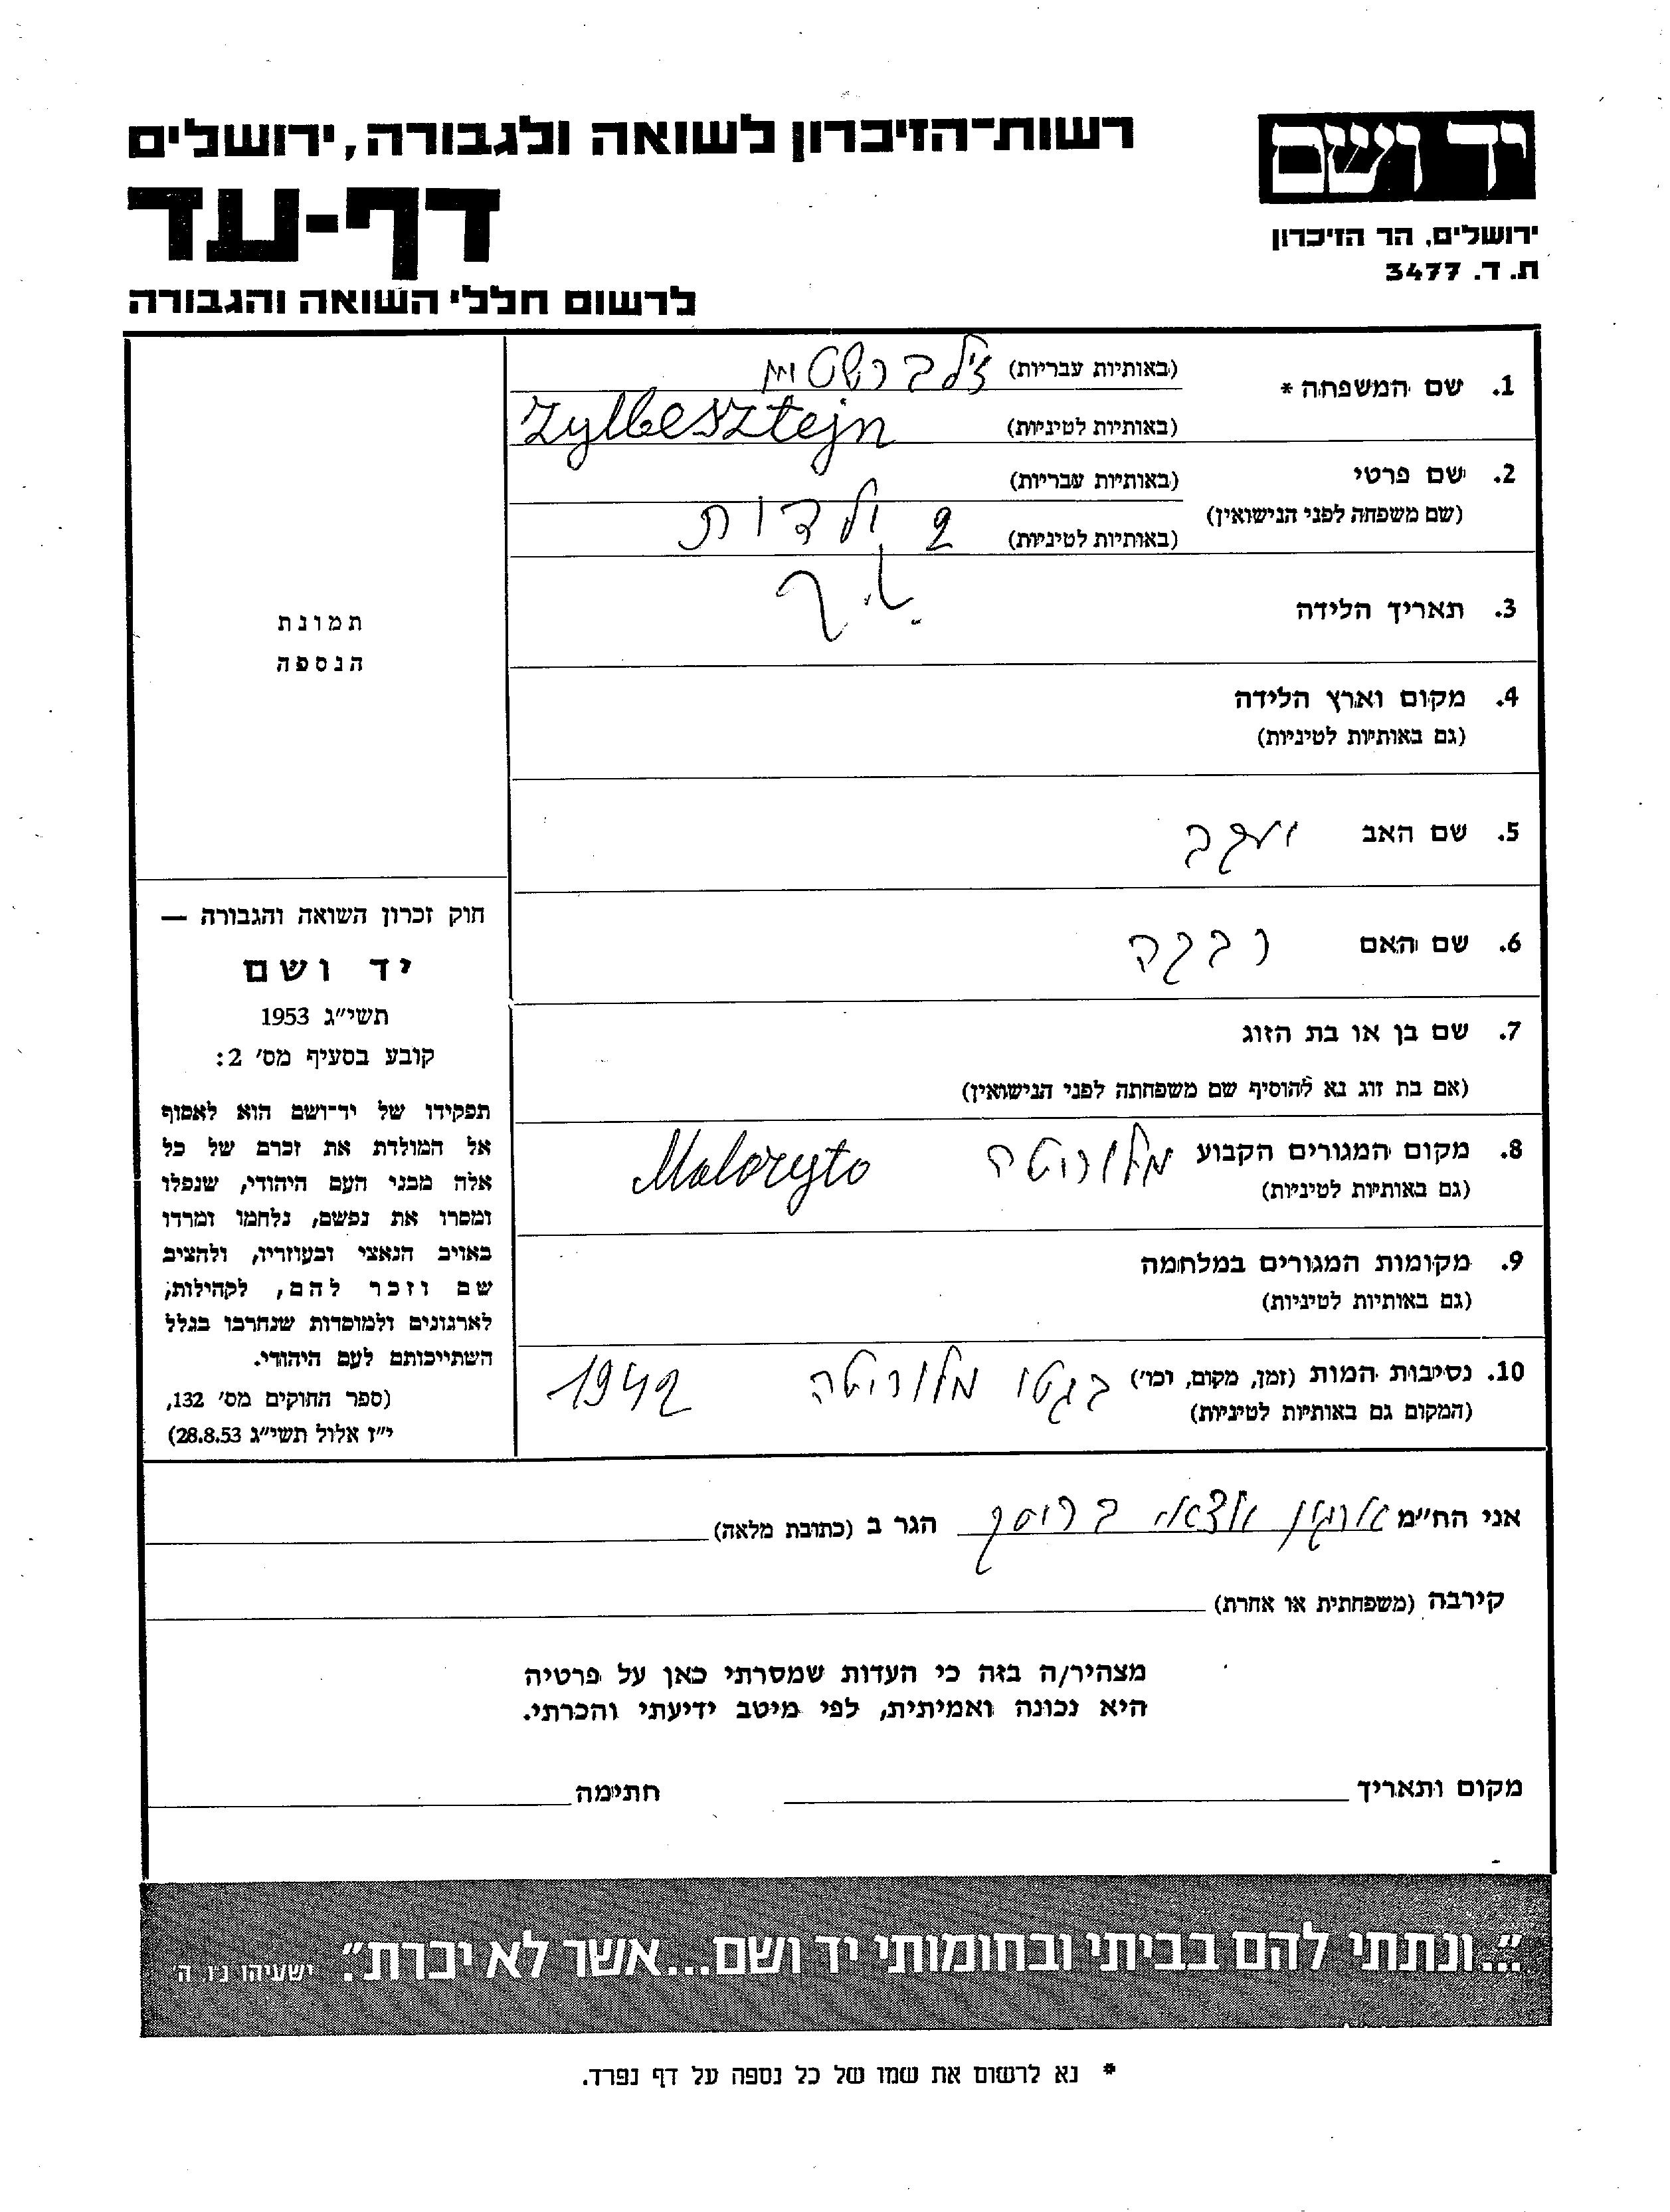 רשות־הזיכרון לשואה ולגבורה, ירושלים
דף-עד
לרשום חללי השואה והגבורה
יד ושם
ירושלים, הר הזיכרון
ת. ד. 3477
1. שם המשפחה *
(באותיות עבריות)
(באותיות לטיניות) Zylbesztejn
2. שם פרטי
(שם משפחה לפני הנישואין)
(באותיות עבריות)
(באותיות לטיניות)
2 ילדות
3. תאריך הלידה
4. מקום וארץ הלידה
(גם באותיות לטיניות)
5. שם האב יעקב
6. שם האם רבקה
7. שם בן או בת הזוג
(אם בת זוג נא להוסיף שם משפחתה לפני הנישואין)
8. מקום המגורים הקבוע מלוריטה Maloryto
(גם באותיות לטיניות)
9. מקומות המגורים במלחמה
(גם באותיות לטיניות)
10. נסיבות המות (זמן, מקום, וכו') בגטו מלוריטה 1942
(המקום גם באותיות לטיניות)
תמונת
הנספה
חוק זכרון השואה והגבורה —
יד ושם
תשי"ג 1953
קובע בסעיף מס' 2:
תפקידו של יד־ושם הוא לאסוף
אל המולדת את זכרם של כל
אלה מבני העם היהודי, שנפלו
ומסרו את נפשם, נלחמו ומרדו
באויב הנאצי ובעוזריו, ולהציב
שם וזכר להם, לקהילות,
לארגונים ולמוסדות שנחרבו בגלל
השתייכותם לעם היהודי.
(ספר החוקים מס' 132,
י"ז אלול תשי"ג 28.8.53)
אני הח"מ ארגון יוצאי בריסק הגר ב (כתובת מלאה)
קירבה (משפחתית או אחרת)
מצהיר/ה בזה כי העדות שמסרתי כאן על פרטיה
היא נכונה ואמיתית, לפי מיטב ידיעתי והכרתי.
מקום ותאריך חתימה
"...ונתתי להם בביתי ובחומותי יד ושם...אשר לא יכרת". ישעיהו נ"ו ה'
* נא לרשום את שמו של כל נספה על דף נפרד.